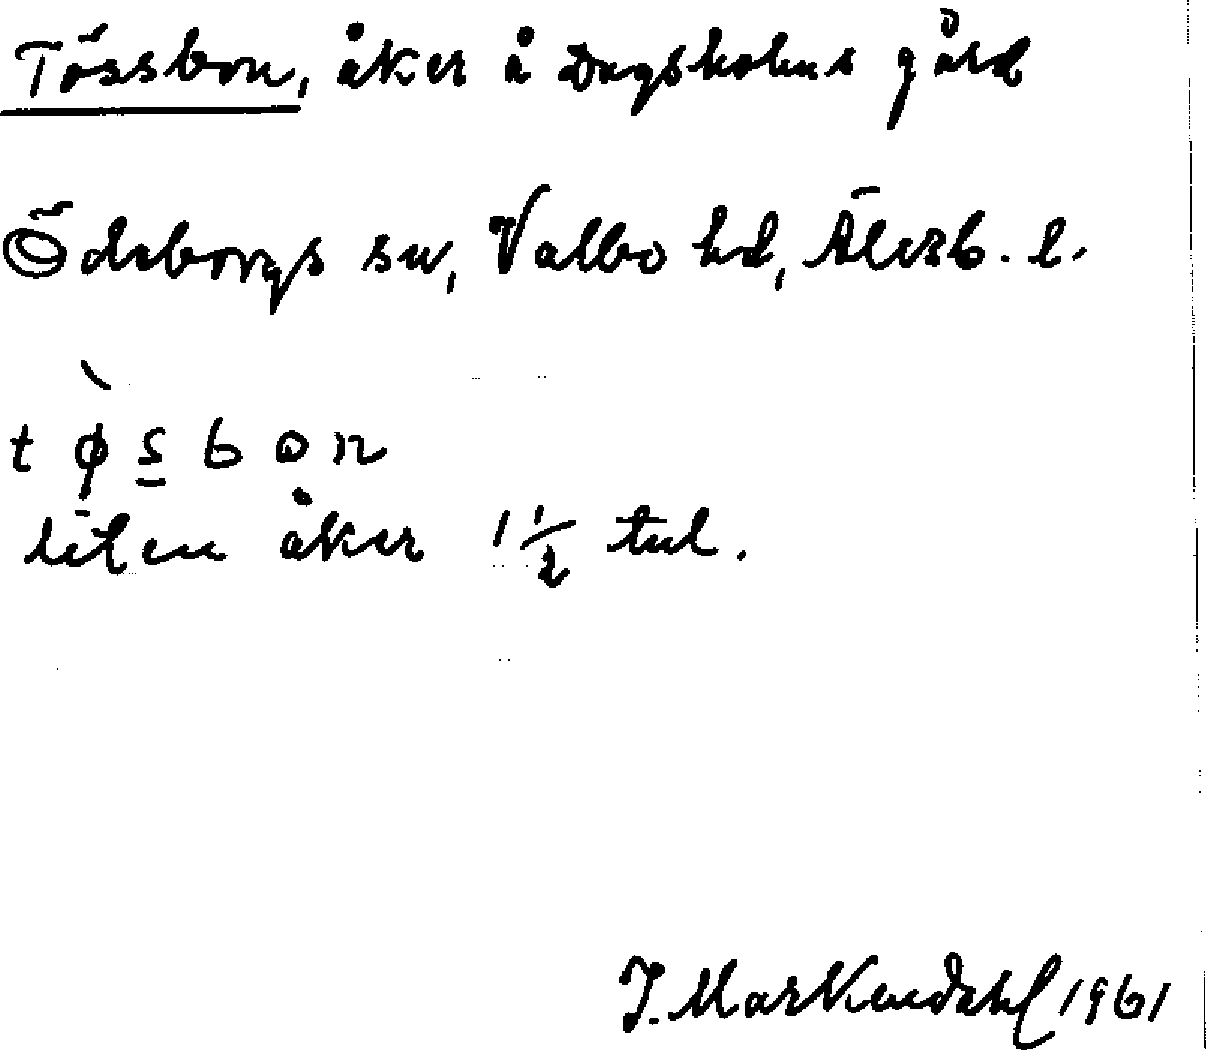 Tössbon, åker å Dagsholms gård
Ödeborgs sn, Valbo hd, Älvsb. l.
t ø̀ s̲ b o n
liten åker 1 1/2 tnl.
J. Markendahl 1961